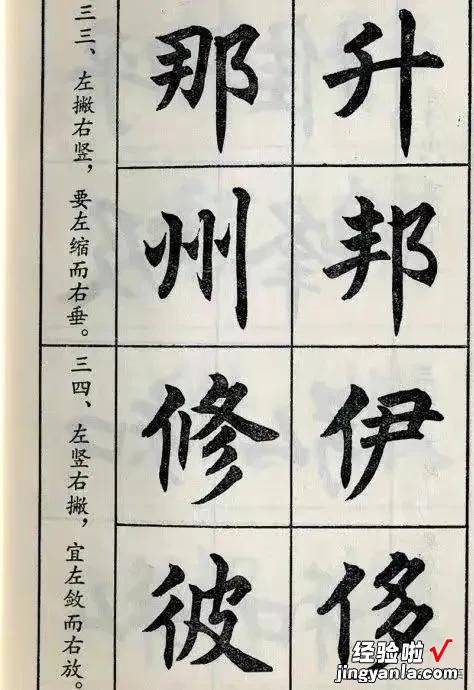 三三、左撇右竖，要左缩而右垂。
升
那
邦
州
三四、左竖右撇，宜左敛而右放。
伊
修
侈
彼
经验啦√
jingyanla.com